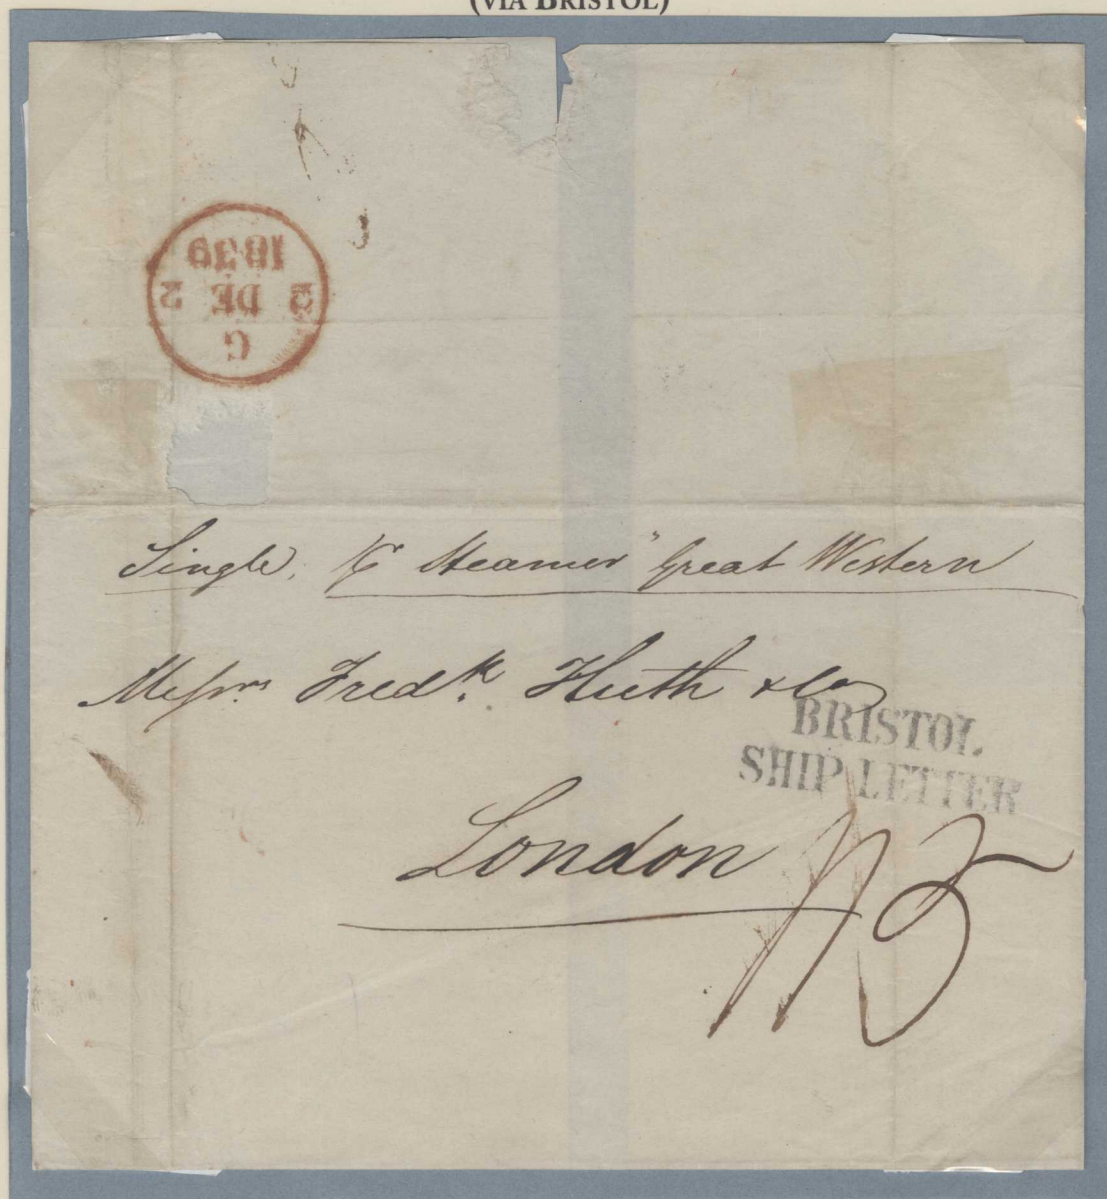 (VIA BRISTOL)
G
2 DE 2
1839
Single, ⅌ Steamer "Great Western
Messrs Fredk. Huth & Co
BRISTOL
SHIP LETTER
London